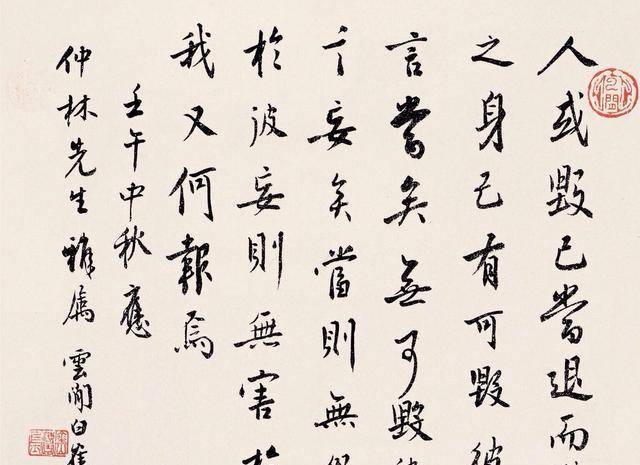 人或毀己當退而
之身己有可毀彼
言當矣無可毀
言妄矣當則無
於彼妄則無害於
我又何報焉
壬午中秋應
仲林先生雅屬 雲間白蕉